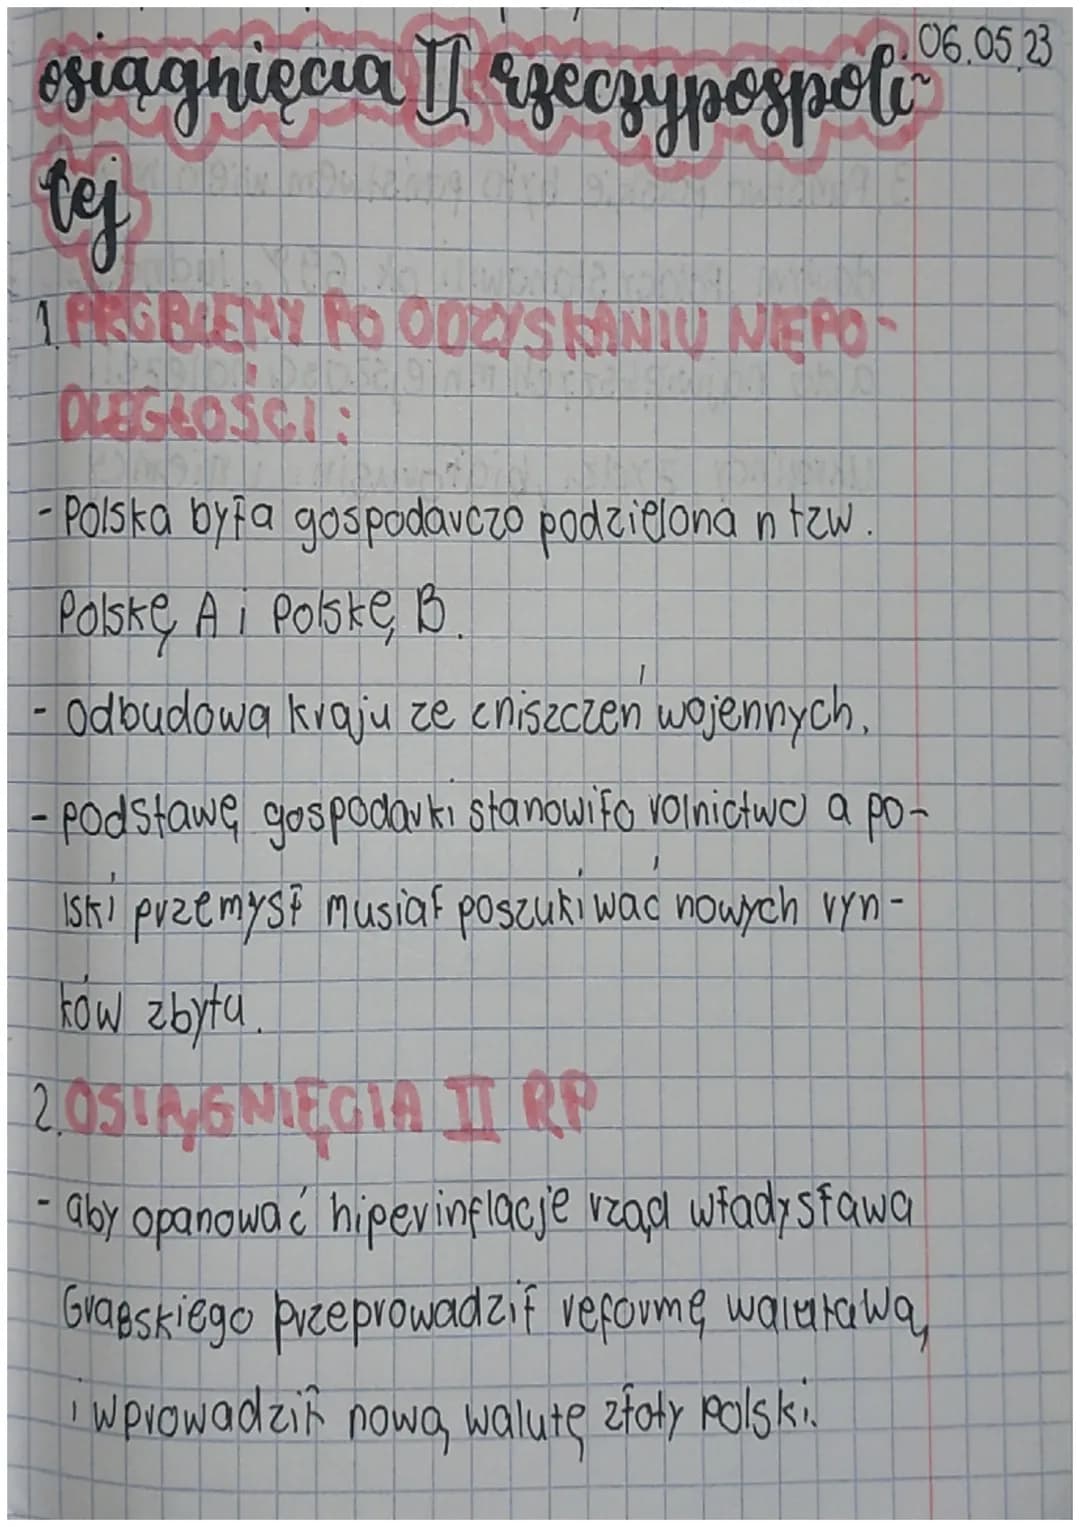 06.05.23
osiągnięcia II rzeczypospoli-
tej
1. PROBLEMY PO ODZYSKANIU NIEPO-
DLEGŁOŚCI:
- Polska była gospodarczo podzielona n tzw.
Polskę A i Polskę B.
- odbudowa kraju ze zniszczeń wojennych.
- podstawę gospodarki stanowiło rolnictwo a po-
lski przemysł musiał poszukiwać nowych ryn-
ków zbytu.
2. OSIĄGNIĘCIA II RP
- aby opanować hiperinflacje rząd władysława
Grabskiego przeprowadził reformę walutawą
i wprowadził nową walutę złoty polski.